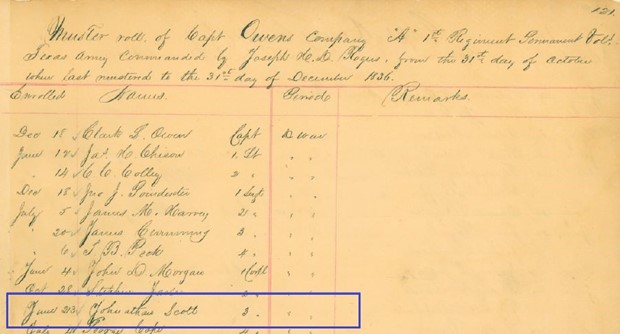 121.
Muster roll of Capt Owens Company "A" 1st Regiment Permanent Vols.
Texas Army Commanded by Joseph H. D. Rogers, from the 31st day of October
when last mustered to the 31st day of December 1836.
Enrolled Names. Period Remarks.
Dec 18 Clark L. Owen Capt D war
June 12 Jas. H. Cheson 1 Lt " "
" 14 C. C. Colley 2 " " "
Dec 18 Jno J. Poindexter 1 Sergt " "
July 5 James M. Harvey 2 " " "
" 20 James Cummming 3 " " "
" 6 S. B. Peck 4 " " "
June 4 John D. Morgan 1 Corpl " "
Oct 28 Stephen 2 " " "
June 23 Johnathan Scott 3 " " "
George Cope 4 "